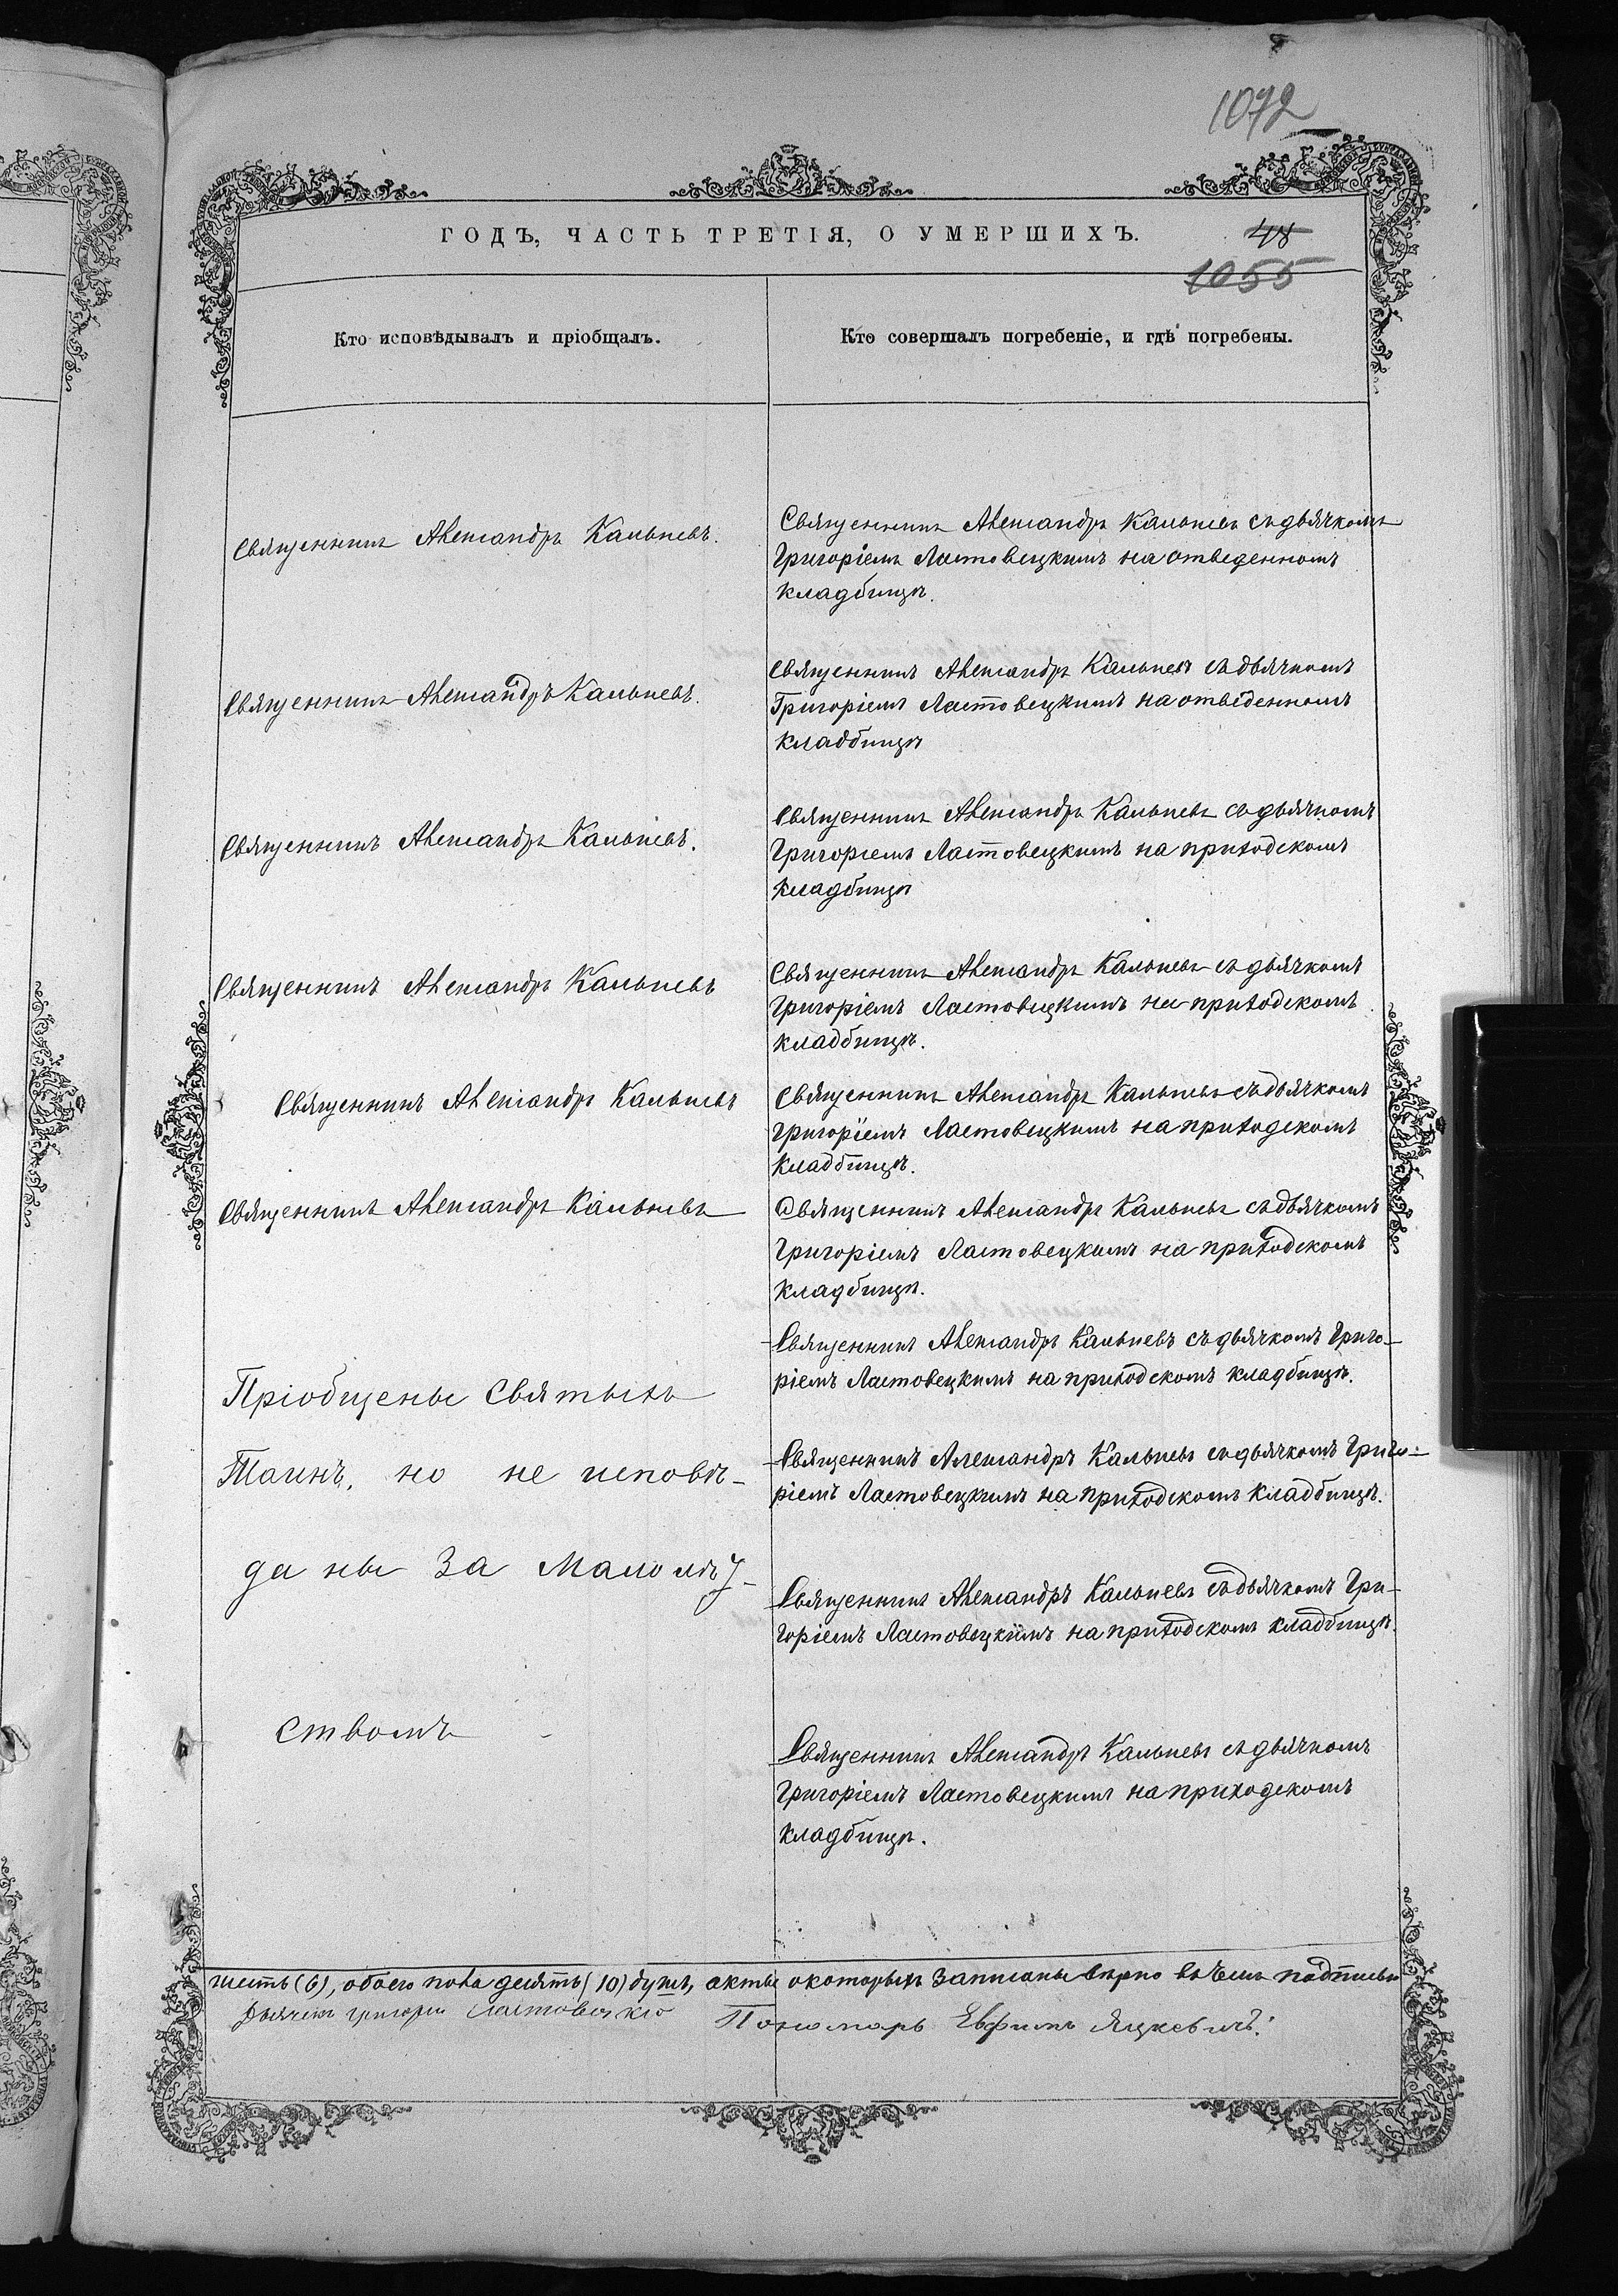 1072
ГОДЪ, ЧАСТЬ ТРЕТІЯ, О УМЕРШИХЪ.
48
1055
Кто исповѣдывалъ и пріобщалъ.
Кто совершалъ погребеніе, и гдѣ погребены.
Священникъ Александръ Кальневъ.
Священникъ Александръ Кальневъ съ дьячкомъ
Григоріемъ Ластовецкимъ на отведенномъ
кладбищѣ.
Священникъ Александръ Кальневъ.
Священникъ Александръ Кальневъ съ дьячкомъ
Григоріемъ Ластовецкимъ на отведенномъ
кладбищѣ
Священникъ Александръ Кальневъ.
Священникъ Александръ Кальневъ съ дьячкомъ
Григоріемъ Ластовецкимъ на приходскомъ
кладбищѣ
Священникъ Александръ Кальневъ
Священникъ Александръ Кальневъ съ дьячкомъ
Григоріемъ Ластовецкимъ на приходскомъ
кладбищѣ.
Священникъ Александръ Кальневъ
Священникъ Александръ Кальневъ съ дьячкомъ
Григоріемъ Ластовецкимъ на приходскомъ
кладбищѣ.
Священникъ Александръ Кальневъ
Священникъ Александръ Кальневъ съ дьячкомъ
Григоріемъ Ластовецкимъ на приходскомъ
кладбищѣ.
Пріобщены Святыхъ
Таинъ, но не исповѣ-
даны за малолѣт-
ствомъ
Священникъ Александръ Кальневъ съ дьячкомъ Григо-
ріемъ Ластовецкимъ на приходскомъ кладбищѣ.
Священникъ Александръ Кальневъ съ дьячкомъ Григо-
ріемъ Ластовецкимъ на приходскомъ кладбищѣ.
Священникъ Александръ Кальневъ съ дьячкомъ Гри-
горіемъ Ластовецкимъ на приходскомъ кладбищѣ.
Священникъ Александръ Кальневъ съ дьячкомъ
Григоріемъ Ластовецкимъ на приходскомъ
кладбищѣ.
шесть (6), обоего пола десять (10) душъ, акты о которыхъ записаны вѣрно въ чемъ подписы
Дьячекъ Григорій Ластовецкій
Пономарь Евфимъ Яцкевичъ.